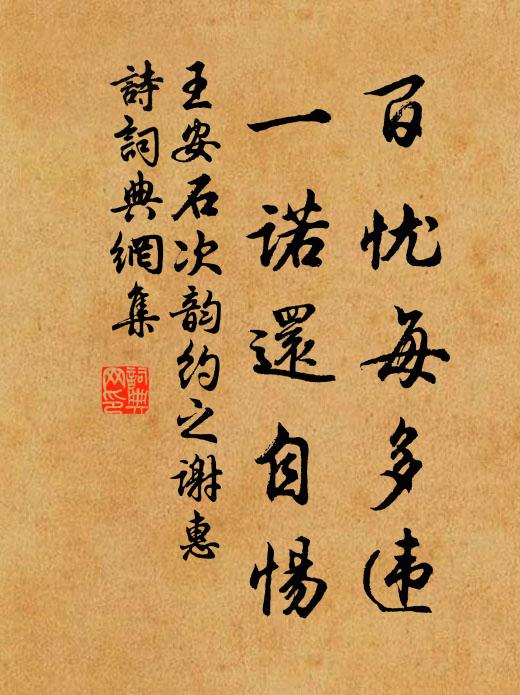 百忧每多违
一诺還自惕
王安石次韵约之谢惠
詩詞典網集
詞典网印